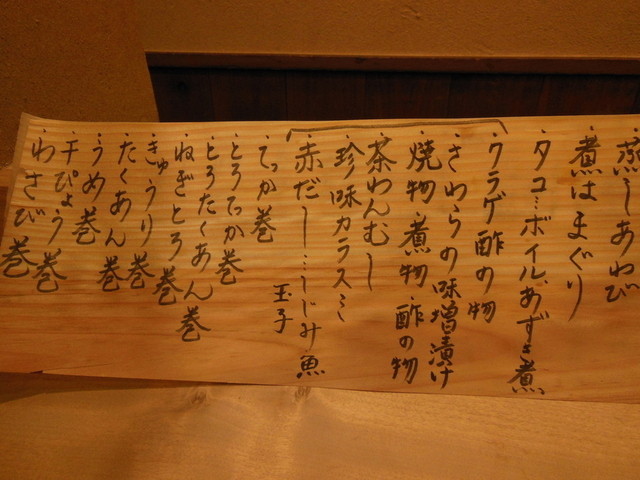 蒸しあわび
煮はまぐり
タコ…ボイル、あずき煮
クラゲ酢の物
さわらの味増漬け
焼物・煮物・酢の物
茶わんむし
珍味カラスミ
赤だし…しじみ魚
玉子
てっか巻
とろてっか巻
とろたくあん巻
ねぎとろ巻
きゅうり巻
たくあん巻
うめ巻
干ぴょう巻
わさび巻